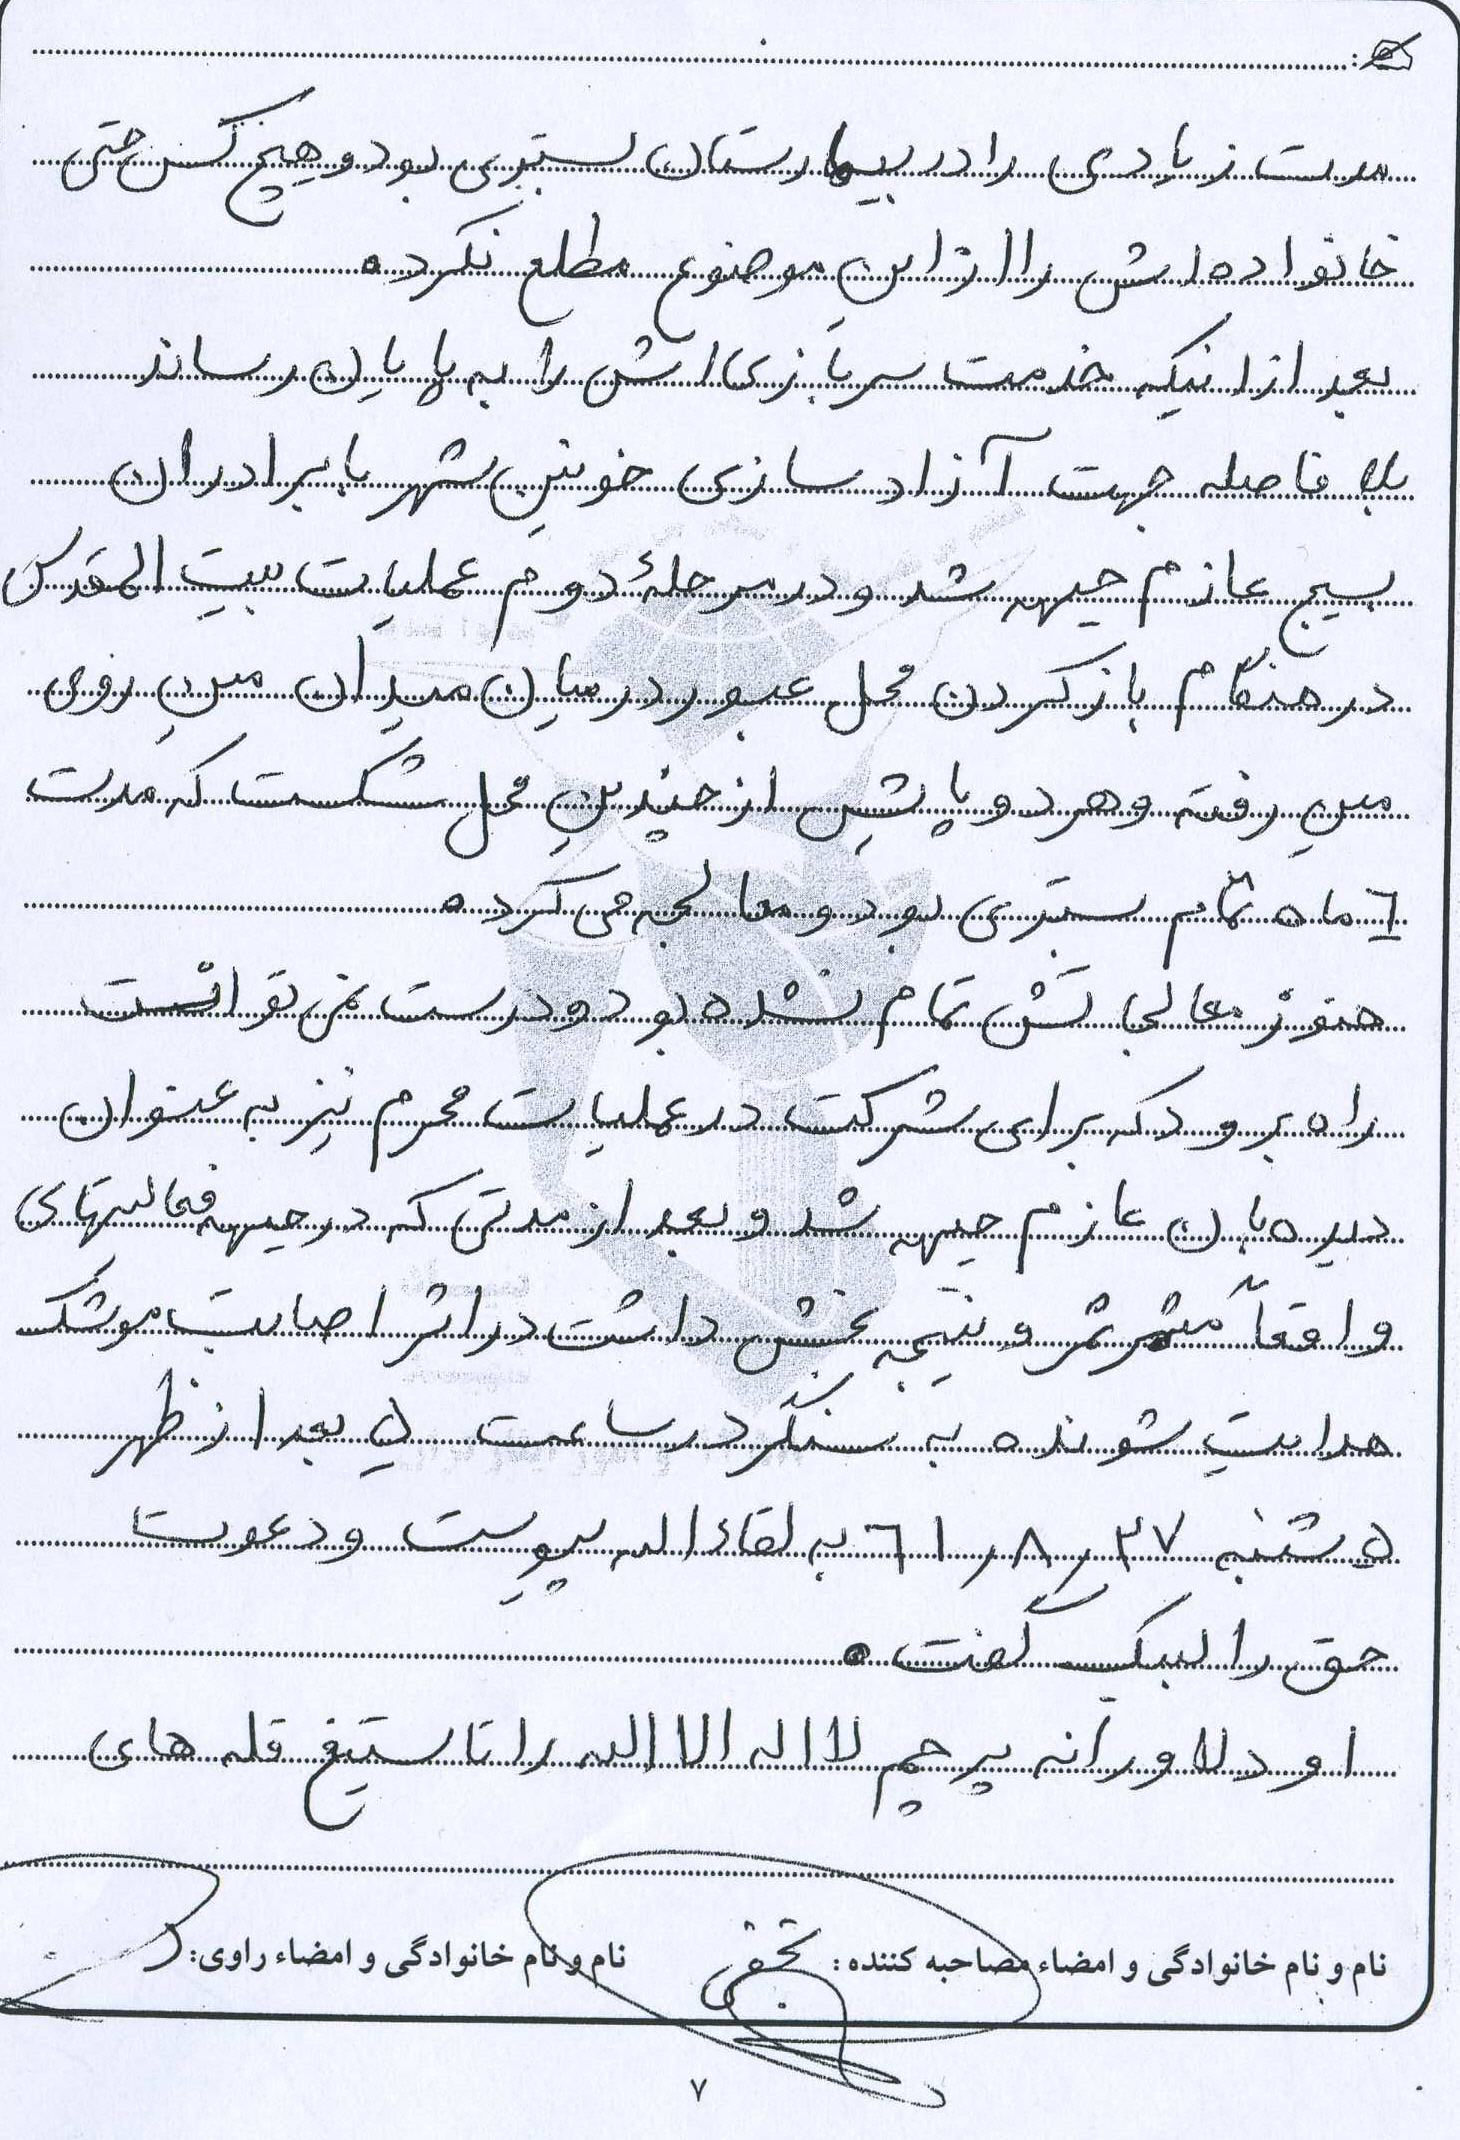 مدت زیادی را در بیمارستان بستری بود و هیچ کس حتی
خانواده اش را از این موضوع مطلع نکرد.
بعد از اینکه خدمت سربازی اش را به پایان رساند
بلا فاصله جهت آزاد سازی خونین شهر با برادران
بسیج عازم جبهه شد و در مرحلهٔ دوم عملیات بیت المقدس
در هنگام باز کردن محل عبور در میان میدان مین روی
مین رفته و هر دو پایش از چندین محل شکست که مدت
٦ ماه تمام بستری بود و معالجه می کرد.
هنوز معالجاتش تمام نشده بود و درست نمی توانست
راه برود که برای شرکت در عملیات محرم نیز به عنوان
دیده بان عازم جبهه شد و بعد از مدتی که در جبهه فعالیتهای
واقعاً مثمر ثمر و نتیجه بخش داشت در اثر اصابت موشک
هدایت شونده به سنگر در ساعت ۵ بعد از ظهر
۵ شنبه ۲۷ ر ۸ ر ٦۱ به لقاء الله پیوست و دعوت
حق را لبیک گفت.
او دلاورانه پرچم لا اله الا الله را تا ستیغ قله های
نام و نام خانوادگی و امضاء مصاحبه کننده:
نام و نام خانوادگی و امضاء راوی:
۷